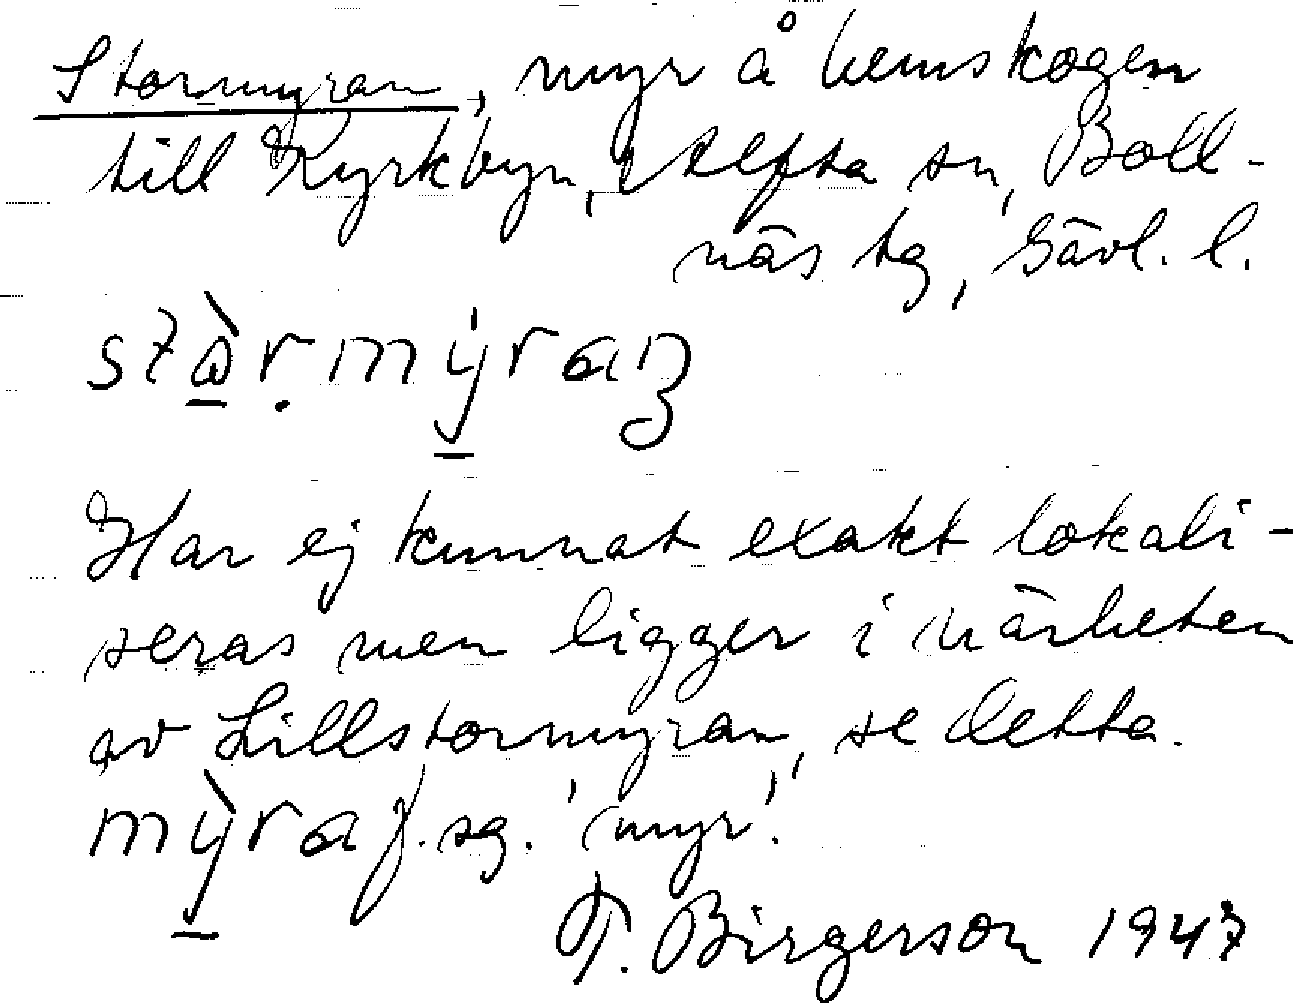 Stormyran, myr å hemskogen
till Kyrkbyn, Alfta sn, Boll-
näs tg, Gävl. l.
Har ej kunnat exakt lokali-
seras men ligger i närheten
av Lillstormyran, se detta.
mỳra f. sg. 'myr'.
T. Birgerson 1947